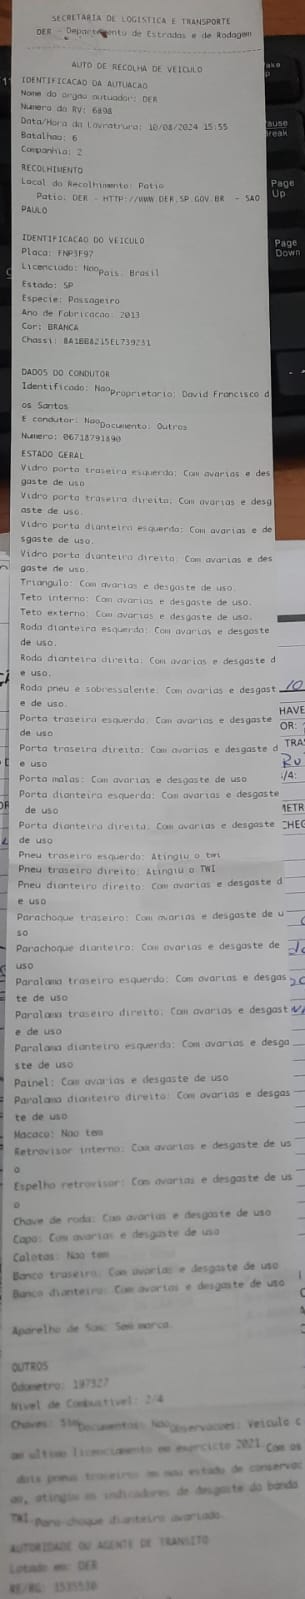 SECRETARIA DE LOGISTICA E TRANSPORTE
DER - Departamento de Estradas e de Rodagem
AUTO DE RECOLHA DE VEICULO
IDENTIFICACAO DA AUTUACAO
Nome do orgao autuador: DER
Numero do RV: 6898
Data/Hora da Lavratura: 10/08/2024 15:55
Batalhao: 6
Companhia: 2
RECOLHIMENTO
Local do Recolhimento: Patio
Patio: DER - HTTP://WWW.DER.SP.GOV.BR - SAO
PAULO
IDENTIFICACAO DO VEICULO
Placa: FNP3F97
Licenciado: Nao Pais: Brasil
Estado: SP
Especie: Passageiro
Ano de Fabricacao: 2013
Cor: BRANCA
Chassi: 8A1BB8215EL739231
DADOS DO CONDUTOR
Identificado: Nao Proprietario: David Francisco d
os Santos
E condutor: Nao Documento: Outros
Numero: 06718791890
ESTADO GERAL
Vidro porta traseira esquerdo: Com avarias e des
gaste de uso
Vidro porta traseira direita: Com avarias e desg
aste de uso.
Vidro porta dianteira esquerdo: Com avarias e de
sgaste de uso.
Vidro porta dianteira direito: Com avarias e des
gaste de uso
Triangulo: Com avarias e desgaste de uso.
Teto interno: Com avarias e desgaste de uso.
Teto externo: Com avarias e desgaste de uso.
Roda dianteira esquerdo: Com avarias e desgaste
de uso.
Roda dianteira direita: Com avarias e desgaste d
e uso.
Roda pneu e sobressalente: Com avarias e desgast
e de uso.
Porta traseira esquerdo: Com avarias e desgaste
de uso
Porta traseira direito: Com avarias e desgaste d
e uso
Porta malas: Com avarias e desgaste de uso
Porta dianteira esquerdo: Com avarias e desgaste
de uso
Porta dianteira direito: Com avarias e desgaste
de uso
Pneu traseiro esquerdo: Atingiu o twi
Pneu traseiro direito: Atingiu o TWI
Pneu dianteiro direito: Com avarias e desgaste d
e uso
Parachoque traseiro: Com avarias e desgaste de u
so
Parachoque dianteiro: Com avarias e desgaste de
uso
Paralama traseiro esquerdo: Com avarias e desgas
te de uso
Paralama traseiro direito: Com avarias e desgast
e de uso
Paralama dianteiro esquerdo: Com avarias e desga
ste de uso
Painel: Com avarias e desgaste de uso
Paralama dianteiro direito: Com avarias e desgas
te de uso
Macaco: Nao tem
Retrovisor interno: Com avarias e desgaste de us
o
Espelho retrovisor: Com avarias e desgaste de us
o
Chave de roda: Com avarias e desgaste de uso
Capo: Com avarias e desgaste de uso
Calotas: Nao tem
Banco traseiro: Com avarias e desgaste de uso
Banco dianteiro: Com avarias e desgaste de uso
Aparelho de Som: Sem marca.
OUTROS
Odometro: 197327
Nivel de Combustivel: 2/4
Chaves: Sim Documentos: Nao Observacoes: Veiculo c
om ultimo licenciamento em exercicio 2021. Com os
dois pneus traseiros em mau estado de conservac
ao, atingiu os indicadores de desgaste da banda
TWI. Para-choque dianteiro avariado.
AUTORIDADE OU AGENTE DE TRANSITO
Lotado em: DER
RE/RG: 1535530
Page
Up
Page
Down
10
HAVE
OR:
TRA
/4:
METR
CHEG